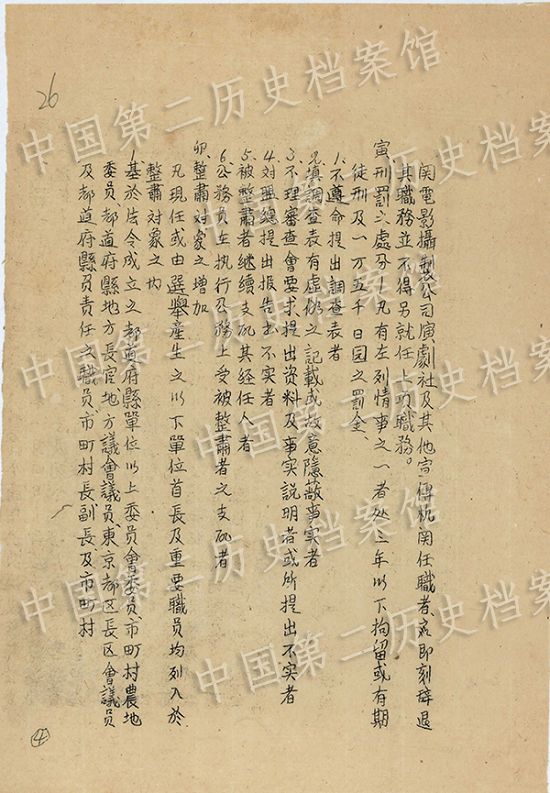 26
関電影攝製公司演劇社及其他宣傳机関任職者、应即刻辞退
其職務並不得另就任上項職務。
寅、刑罰之處分—凡有左列情事之一者处三年以下拘留或有期
徒刑及一万五千日园之罰金、
1.不遵命提出調查表者
2.填調查表有虚偽之記載或故意隱蔽事实者
3.不理審查會要求提出資料及事实説明者或所提出不实者
4.对盟總提出报告去不实者
5.被整肅者继续支配其经任人者
6.公務员在执行公務上受被整肅者之支配者
卯、整肅对象之增加
凡現任或由選舉産生之以下單位首長及重要職员均列入於
整肅对象之内
1.基於法令成立之都道府縣單位以上委员會委员、市町村農地
委员、都道府縣地方長官地方議會議员、東京都区長区會議员
及都道府縣员責任之職员、市町村長副長及市町村
④
中国第二历史档案馆
中国第二历史档案馆
中国第二历史档案馆
中国第二历史档案馆
中国第二历史档案馆